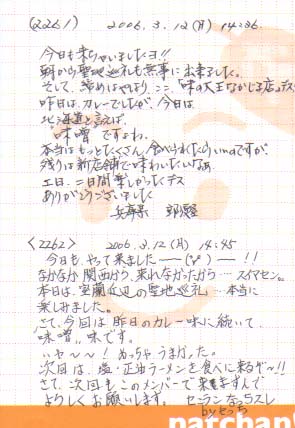 (2261) 2006.3.12(月) 14:36.
今日も来ちゃいましたヨ!!
朝から聖地巡礼も無事に出来ました。
そして、締めはやはりここ「味の大王なかじま店」デス
昨日は、カレーでしたが、今日は
北海道と言えば、
味噌 ですよね。
本当はもっとたくさん食べられたらいいのですが
残りは新店舗で味わいたいなぁ
二日間楽しかったデス
ありがとうございました
兵庫県
<2262> 2006.3.12(月) 14:45
今日も、やって来ました―(°∀°)―!!
なかなか関西から、来れなかったから…スイマセン。
本日は、室蘭近辺の聖地巡礼…本当に
楽しみました。
さて、今回は昨日のカレー味に続いて、
味噌味です。
いや〜〜! めっちゃうまかった。
次回は、塩・正油ラーメンを食べに来るぞ〜!!
さて、次回もこのメンバーで来ますんで
よろしくお願いします。 セラシなっちスレ
byせっち
patchan